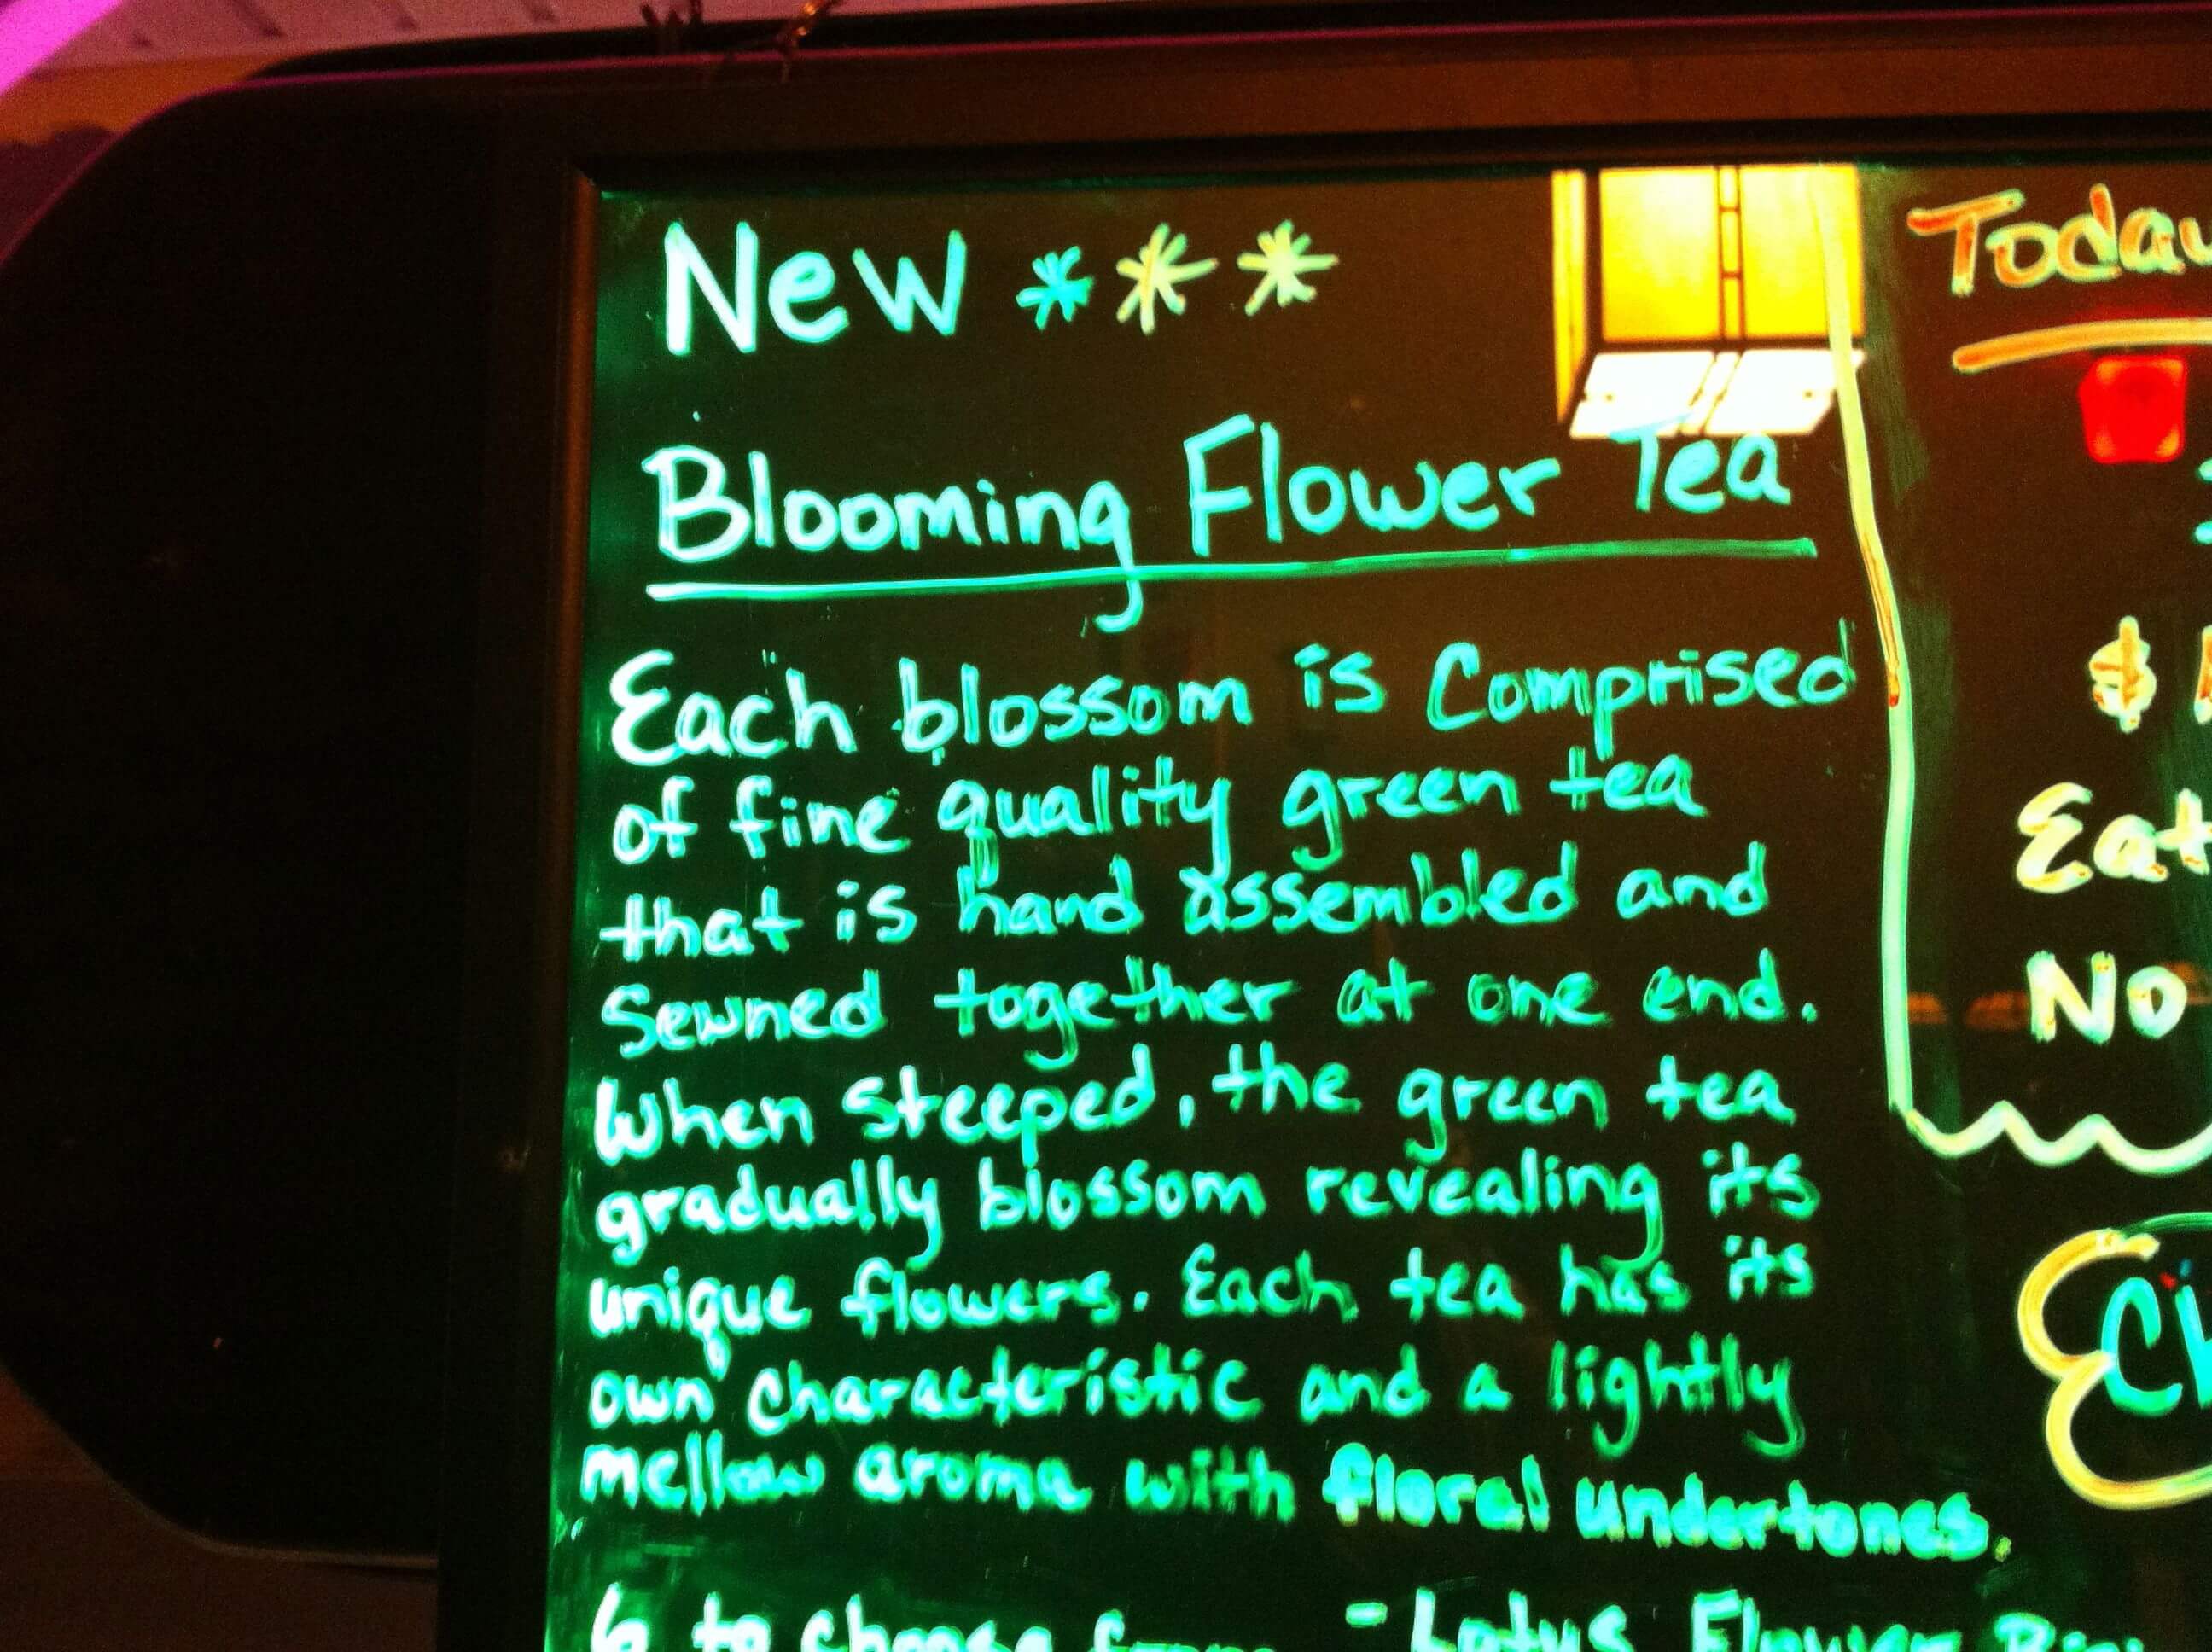 New ***
Blooming Flower Tea
Each blossom is Comprised
of fine quality green tea
that is hand assembled and
Sewned together at one end.
When steeped, the green tea
gradually blossom revealing its
unique flowers. Each tea has its
own characteristic and a lightly
mellow aroma with floral undertones.
6 to choose from - Lotus Flower
Today
$
Eat
No